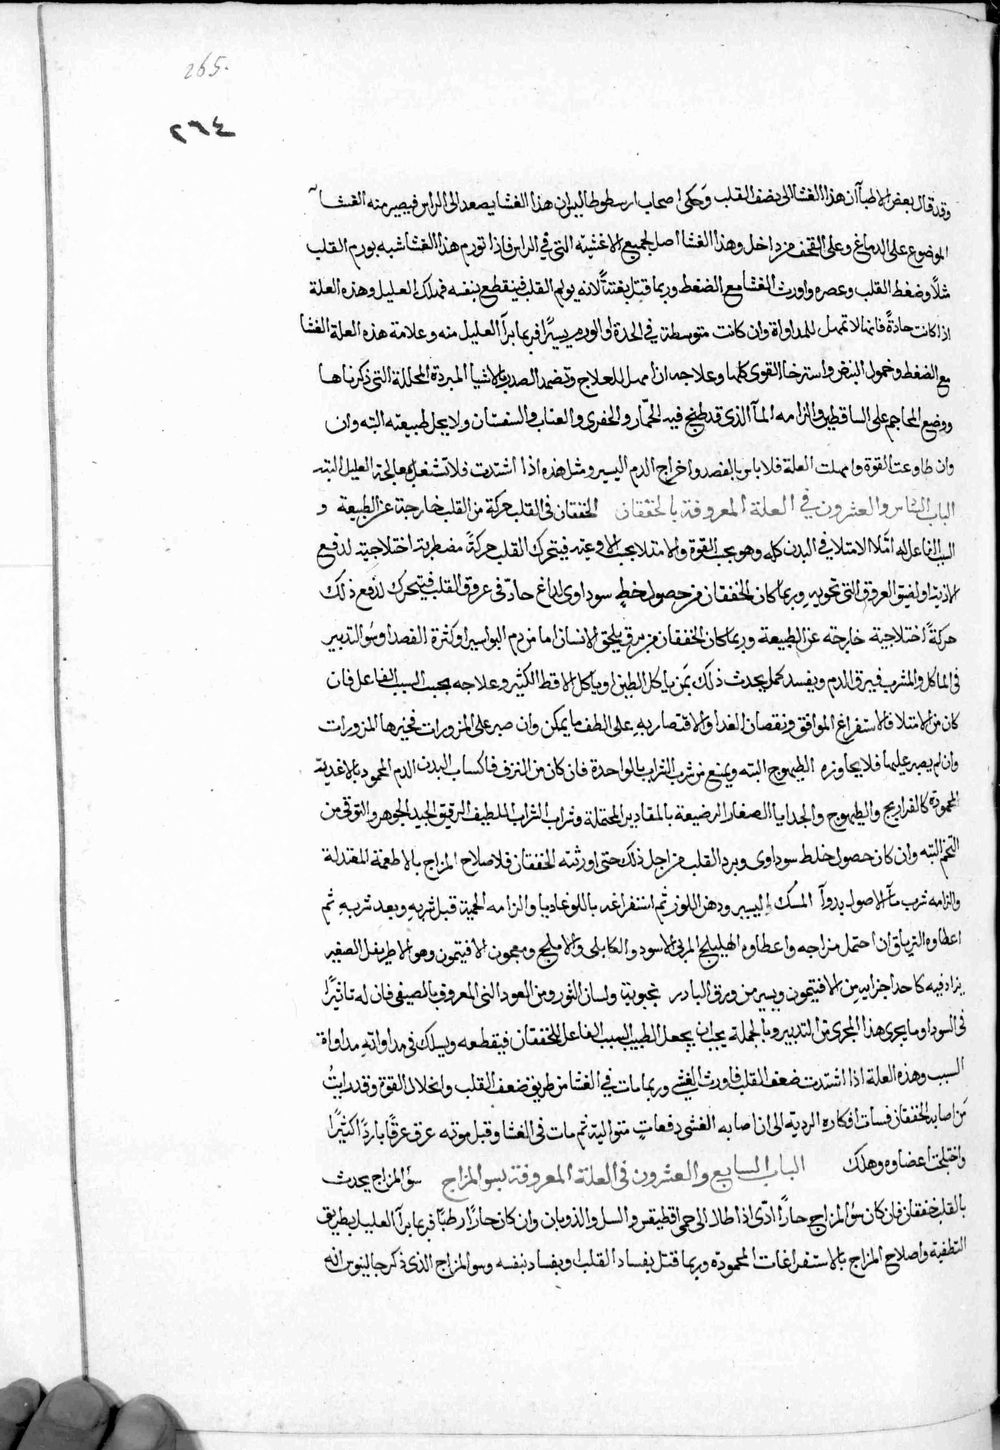 265.
٢٦٤
وقد قال بعض الاطبآ ان هذا الغشا الى نصف القلب وحكى اصحاب ارسطوطاليس ان هذا الغشا يصعد الى الراس فيصير منه الغشآ
الموضوع على الدماغ وعلى القحف من داخل وهذا الغشا اصل لجميع الاغشيه التى فى الراس فاذا تورم هذا الغشا شبه بورم القلب
مثلا وضغط القلب وعصره واورث الغشا مع الضغط وربما قتل بغتتاً لانه يولم القلب فينقطع بنفسه فهلك العليل وهذه العلة
اذا كانت حادةً فانها لا تمهل للمداواة وان كانت متوسطة فى الحدة او الورم يسيرًا فربما برآ العليل منه وعلامة هذه العلة الغشا
مع الضغط وخمول النبض واسترخا القوى كلها وعلاجه ان امهل للعلاج وتضمد الصدر بالاشيا المبردة المحللة التى ذكرناها
ووضع المحاجم على الساقطين والزامه المآ الذى قد طبخ فيه الخمار والحفرى والعناب والسفستان ولا يحل طبيعته البته وان
وان طاوعت القوة وامهلت العلة فلا باس بالفصد واخراج الدم اليسير ومثل هذه اذا اشتدت فلا تشغل بمعالجة العليل البته
الباب السادس والعشرون فى العلة المعروفة بالخفقان الخفقان فى القلب حركة من القلب خارجة عن الطبيعة و
السبب الفاعل له امّا الامتلا فى البدن كله وهو بحسب القوة والامتلا بحسب الاوعيه فيتحرك القلب حركةً مضطربة اختلاجية لدفع
الاذية او لضيق العروق التى تحويه وربما كان الخفقان من حصول خلط سوداوى لداغ حادّ فى عروق القلب فيتحرك لدفع ذلك
حركةً اختلاجية خارجه عن الطبيعة وربما كان الخفقان من برق يلحق الانسان اما من دم البواسير او كثرة الفصد او سُو التدبير
فى الماكل والمشرب فيرق الدم ويفسد كمل يحدث ذلك بمَن ياكل الطين او ياكل الاقط الكثير وعلاجه بحسب السبب الفاعل فان
كان من الامتلا فالاستفراغ الموافق ونقصان الغدا والاقتصار به على الطف ما يمكن وان صبر على المزورات فخيرها المزورات
وان لم يصبر عليها فلا يجاوزه الطيهوج البته ويمنع من شرب الشراب بالواحدة فان كان من النزف فاكساب البدن الدم المحمود بالاغدية
المحمودة كالفراريج والطيهوج والجدايا الصغار الرضيعة بالمقادير المحتملة وشراب الشراب اللطيف الرقيق الجيد الجوهر والتوقى من
التخم البته وان كان حصول خلط سوداوى وبرد القلب من اجل ذلك حتى اورثه الخفقان فلاصلاح المزاج بالاطعمة المعتدلة
والزامه شرب مآ الاصول بدوآ المسك اليسير ودهن اللوز ثم استفراغه باللوغاديا والزامه الحمية قبل شربه وبعد شربه ثم
اعطاوه الترياق ان احتمل مزاجه واعطاوه الهليلج المربى الاسود والكابلى والاملج ومعجون الافتيمون وهو الاطريفل الصغير
يزاد فيه كاحد اجزايه من الافتيمون ويسير من ورق البادر نجبويه ولسان الثور ومن العود النى المعروف بالصيفى فان له تاثيرًا
فى السودا وما يجرى هذا المجرى من التدبير وبالجملة يجب ان يجعل الطبيب السبب الفاعل للخفقان فيقطعه ويسلك فى مداواته مداواة
السبب وهذه العلة اذا اشتدت ضعف القلب فاورث الغشى وربما مات فى الغشا من طريق ضعف القلب وانحلال القوة وقد رايتُ
مَن اصابه الخفقان فسات افكاره الرديه الى ان اصابه الغشى دفعاتٍ متوالية ثم مات فى الغشا وقبل موته عرق عرقًا باردًا كثيرًا
واختلجت اعضاوه وهلك الباب السابع والعشرون فى العلة المعروفة بسو المزاج سُو المزاج يحدث
بالقلب خفقان فان كان سُو المزاج حارًا ادّى اذا طال الى حمى اقطيقس والسل والذوبان وان كان حارًا رطبًا فربما برآ العليل بطريق
التطفية واصلاح المزاج بالاستفراغات المحمودة وربما قتل بفساد القلب او بفساد بنفسه وسو المزاج الذى ذكر جالينوس انه